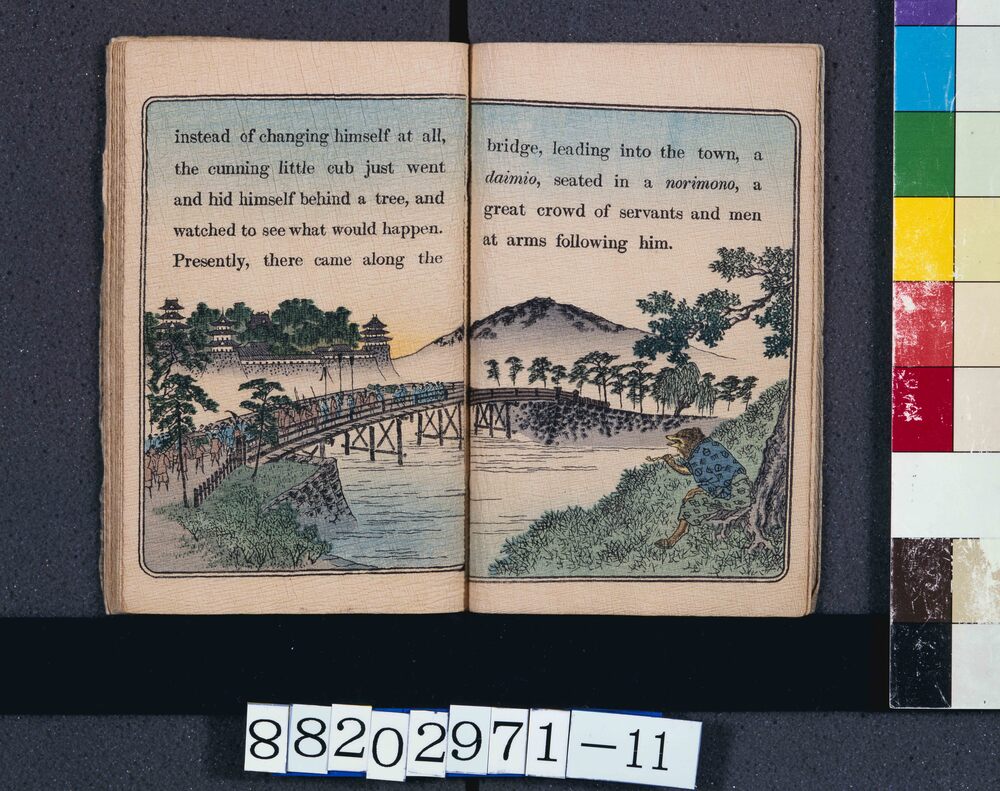 instead of changing himself at all,
the cunning little cub just went
and hid himself behind a tree, and
watched to see what would happen.
Presently, there came along the
bridge, leading into the town, a
daimio, seated in a norimono, a
great crowd of servants and men
at arms following him.
88202971-11